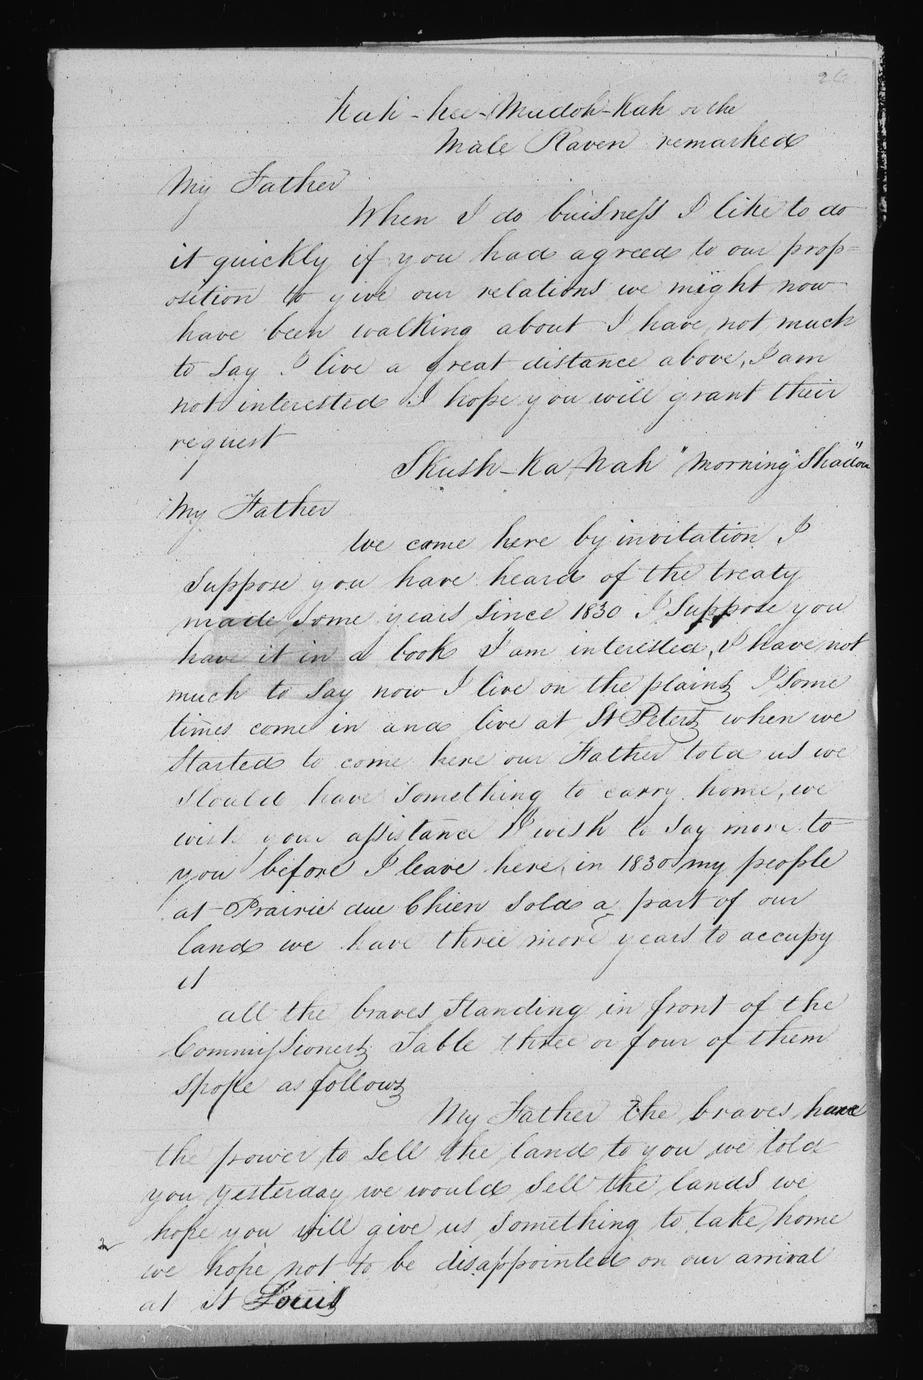 26
Kah-hee-Mudoh-Kah or the
Male Raven remarked
My Father
When I do buisness I like to do
it quickly if you had agreed to our prop=
osition to give our relations we might now
have been walking about I have not much
to say I live a great distance above, I am
not interested I hope you will grant their
request
Skush-Ka-Nah "Morning Shadow"
My Father
We came here by invitation I
suppose you have heard of the treaty
made some years since 1830 I suppose you
have it in a book I am interested, I have not
much to say now I live on the plains I some
times come in and live at St Peters when we
started to come here our Father told us we
should have something to carry home, we
wish your assistance I wish to say more to
you before I leave here, in 1830 my people
at Prairie due Chien sold a part of our
land we have three more years to occupy
it
all the braves standing in front of the
Commissioners Table three or four of them
spoke as follows
My Father the braves have
the power to sell the land to you we told
you yesterday we would sell the lands we
hope you will give us something to take home
we hope not to be disappointed on our arrival
at St Louis